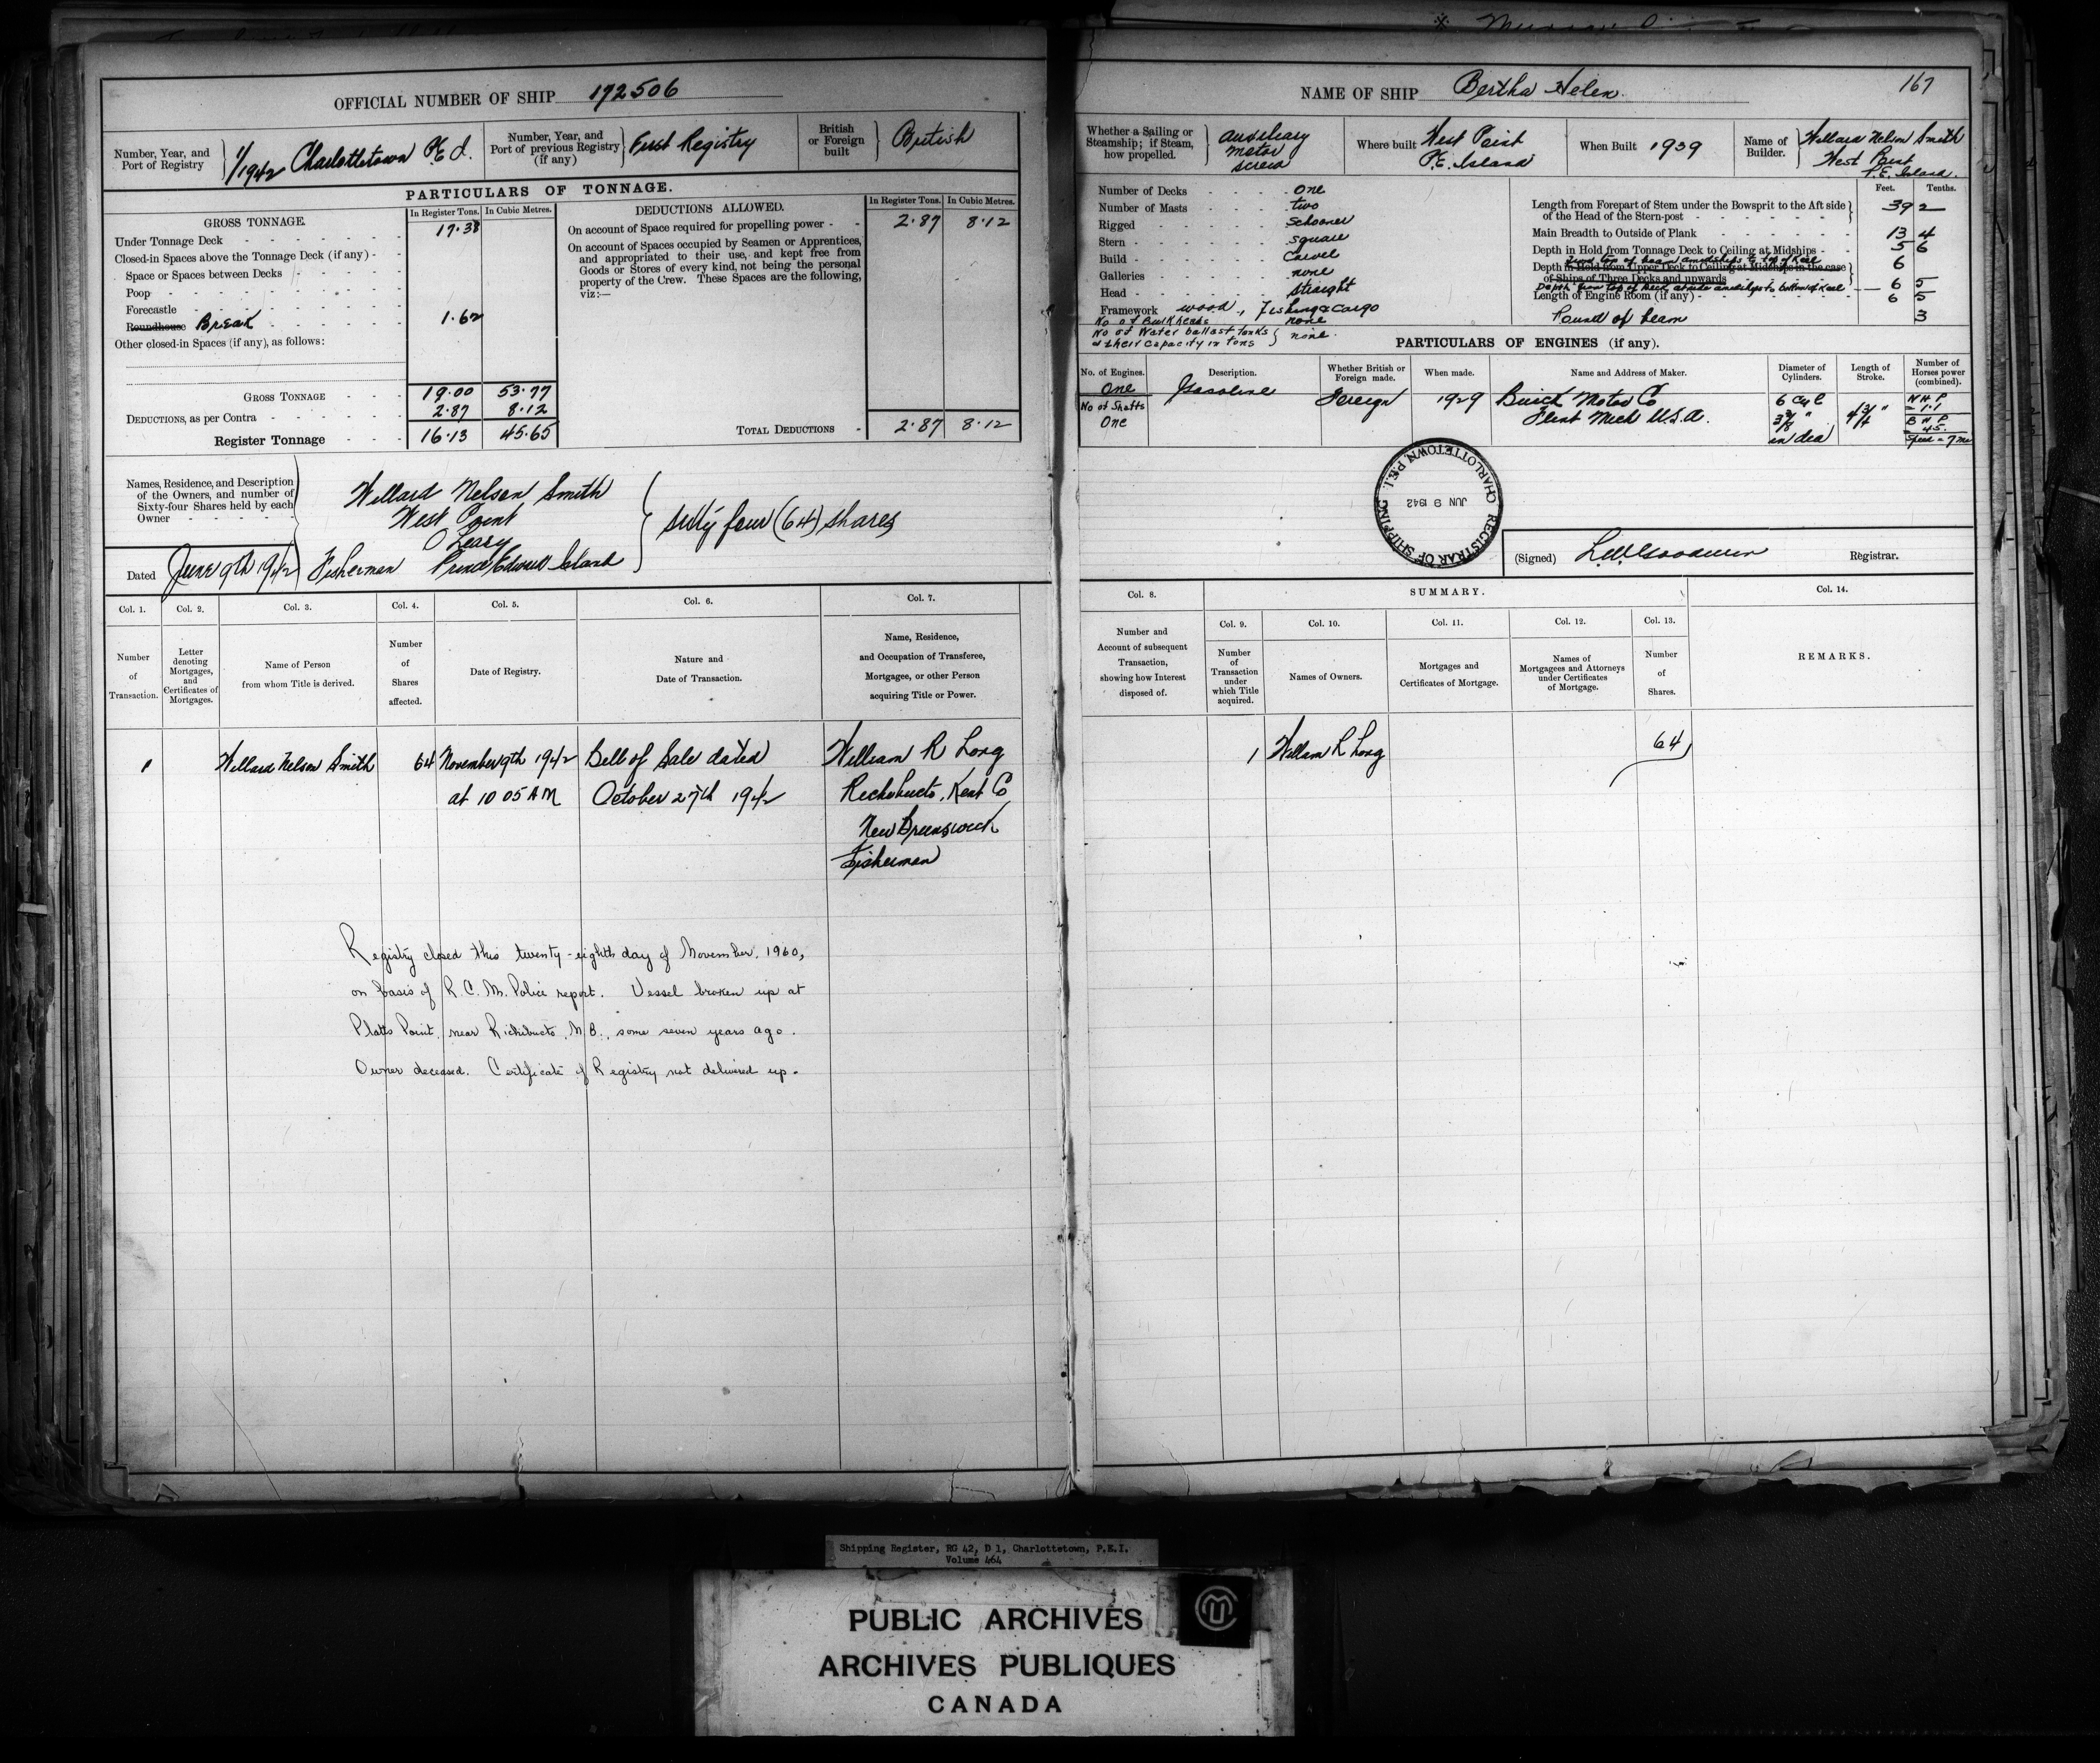 OFFICIAL NUMBER OF SHIP 172506
Number, Year, and Port of Registry
1/1942 Charlottetown P.E.I.
Number, Year, and Port of previous Registry (if any)
First Registry
British or Foreign built
British
PARTICULARS OF TONNAGE.
GROSS TONNAGE.
In Register Tons. In Cubic Metres.
Under Tonnage Deck 17.38
Closed-in Spaces above the Tonnage Deck (if any)
Space or Spaces between Decks
Poop
Forecastle
Roundhouse Break 1.62
Other closed-in Spaces (if any), as follows:
GROSS TONNAGE 19.00 53.77
DEDUCTIONS, as per Contra 2.87 8.12
Register Tonnage 16.13 45.65
DEDUCTIONS ALLOWED.
In Register Tons. In Cubic Metres.
On account of Space required for propelling power 2.87 8.12
On account of Spaces occupied by Seamen or Apprentices,
and appropriated to their use, and kept free from
Goods or Stores of every kind, not being the personal
property of the Crew. These Spaces are the following,
viz:—
TOTAL DEDUCTIONS 2.87 8.12
Names, Residence, and Description
of the Owners, and number of
Sixty-four Shares held by each
Owner
Willard Nelson Smith
West Point
O'Leary
Fisherman Prince Edward Island
sixty four (64) shares
Dated June 9th 1942
Col. 1. Col. 2. Col. 3. Col. 4. Col. 5. Col. 6. Col. 7.
Number of Transaction.
Letter denoting Mortgages, and Certificates of Mortgages.
Name of Person from whom Title is derived.
Number of Shares affected.
Date of Registry.
Nature and Date of Transaction.
Name, Residence, and Occupation of Transferee, Mortgagee, or other Person acquiring Title or Power.
1 Willard Nelson Smith 64 November 9th 1942 Bill of Sale dated William R Long
at 10 05 AM October 27th 1942 Richibucto, Kent Co
New Brunswick
Fisherman
Registry closed this twenty-eighth day of November, 1960,
on basis of R.C.M. Police report. Vessel broken up at
Platts Point, near Richibucto, N.B., some seven years ago.
Owner deceased. Certificate of Registry not delivered up.
NAME OF SHIP Bertha Helen
167
Whether a Sailing or Steamship; if Steam, how propelled.
Auxiliary
Motor
Screw
Where built West Point
P.E. Island
When Built 1939
Name of Builder.
Willard Nelson Smith
West Point
P.E. Island.
Number of Decks One
Number of Masts two
Rigged Schooner
Stern square
Build Carvel
Galleries none
Head straight
Framework wood, Fishing & Cargo
No of Bulkheads none
No of Water ballast tanks
& their capacity in tons none.
Feet. Tenths.
Length from Forepart of Stem under the Bowsprit to the Aft side
of the Head of the Stern-post 39 2
Main Breadth to Outside of Plank 13 4
Depth in Hold from Tonnage Deck to Ceiling at Midships 5 6
from top of beam amidships to top of Keel
Depth in Hold from Upper Deck to Ceiling at Midships in the case 6
of Ships of Three Decks and upwards
Depth from top of Deck at side amidships to bottom of Keel 6 5
Length of Engine Room (if any) 6 5
Round of beam 3
PARTICULARS OF ENGINES (if any).
No. of Engines. Description. Whether British or Foreign made. When made. Name and Address of Maker. Diameter of Cylinders. Length of Stroke. Number of Horses power (combined).
One Gasoline Foreign 1929 Buick Motor Co
Flint Mich U.S.A.
No of Shafts
One
6 Cyl
3 3/8 "
in dia
4 3/4 "
N H P
= 1.1
B H P
45.
Speed = 7 m
REGISTRAR OF SHIPPING
JUN 9 1942
CHARLOTTETOWN, P.E.I.
(Signed) L.W. Goodwin Registrar.
Col. 8. SUMMARY. Col. 14.
Col. 9. Col. 10. Col. 11. Col. 12. Col. 13.
Number and Account of subsequent Transaction, showing how Interest disposed of.
Number of Transaction under which Title acquired.
Names of Owners.
Mortgages and Certificates of Mortgage.
Names of Mortgagees and Attorneys under Certificates of Mortgage.
Number of Shares.
REMARKS.
1 William R Long 64
Shipping Register, RG 42, D 1, Charlottetown, P.E.I.
Volume 464
PUBLIC ARCHIVES
ARCHIVES PUBLIQUES
CANADA